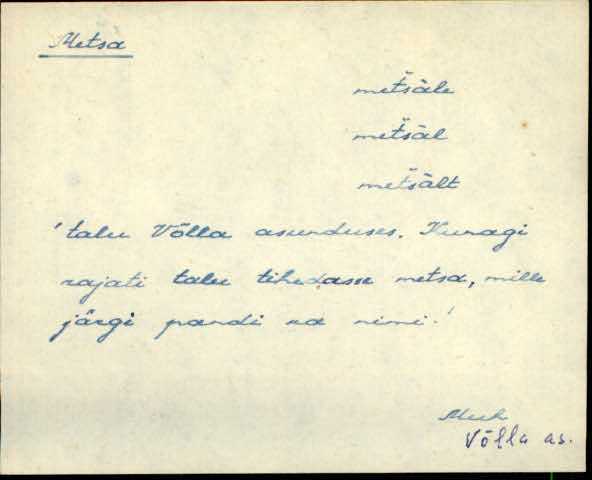 Metsa
metsäle
metsäl
metsält
'talu Võlla asunduses. Kunagi
rajati talu tihedasse metsa, mille
järgi pandi ka nimi.'
Muh
Võlla as.